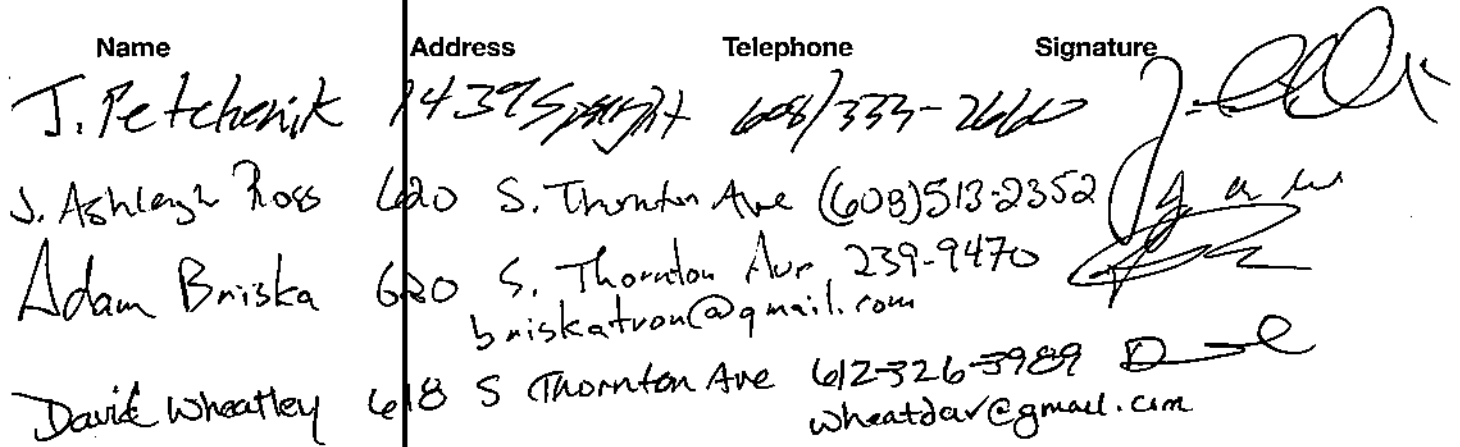 Name Address Telephone Signature
J. Petchenik 1439 Spaight 608/333-2660
J. Ashleigh Ross 620 S. Thornton Ave (608)513-2352
Adam Briska 620 S. Thornton Ave 239-9470
briskatron@gmail.com
David Wheatley 618 S Thornton Ave 612-326-3989
wheatdav@gmail.com